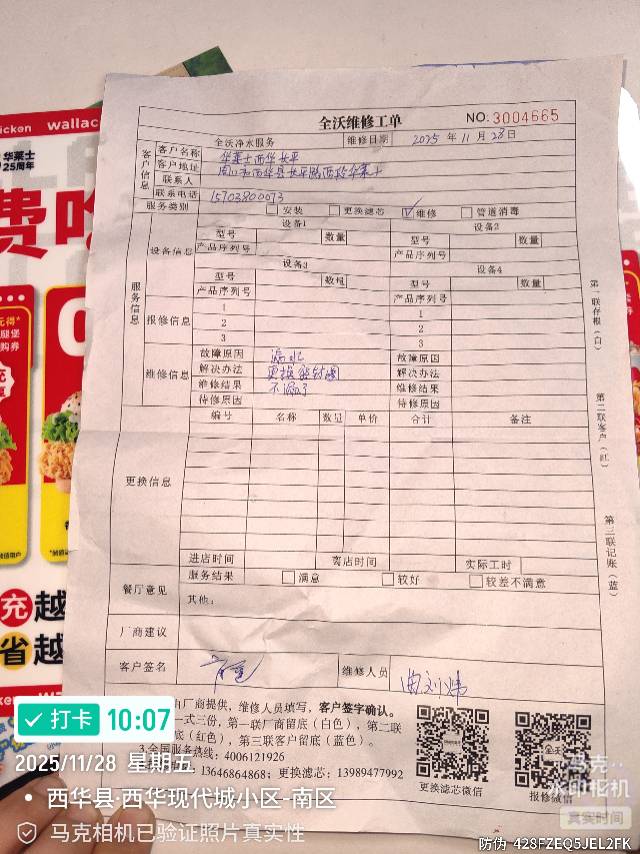 全沃维修工单
NO: 3004665
全沃净水服务 维修日期 2025 年 11 月 28 日
客户信息
客户名称 华莱士西华长平
客户地址 周口市西华县长平路西段华莱士
联系人
联系电话 15703800073
服务类别 安装 更换滤芯 ✓ 维修 管道消毒
服务信息
设备信息
设备1 设备2
型号 数量 型号 数量
产品序列号 产品序列号
设备3 设备4
型号 数量 型号 数量
产品序列号 产品序列号
报修信息
1 1
2 2
3 3
维修信息
故障原因 漏水 故障原因
解决办法 更换密封圈 解决办法
维修结果 不漏了 维修结果
待修原因 待修原因
更换信息
编号 名称 数量 单价 合计 备注
进店时间 离店时间 实际工时
餐厅意见
服务结果 满意 较好 较差不满意
其他:
厂商建议
客户签名 维修人员
由厂商提供，维修人员填写，客户签字确认。
一式三份，第一联厂商留底（白色），第二联
底（红色），第三联客户留底（蓝色）。
3.全国服务热线：4006121926
13646864868；更换滤芯：13989477992
更换滤芯微信 报修微信
第一联存根（白）
第二联客户（红）
第三联记账（蓝）
wallace
华莱士
25周年
费
充 越
省 越
打卡 10:07
2025/11/28 星期五
西华县·西华现代城小区-南区
马克相机已验证照片真实性
马克
水印相机
真实时间
防伪 428FZEQ5JEL2FK